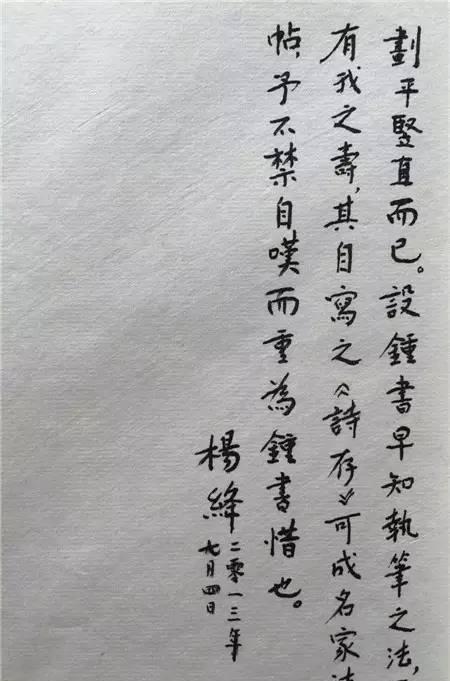 劃平豎直而已。設鍾書早知執筆之法，
有我之壽，其自寫之《詩存》可成名家
帖，予不禁自嘆而重為鍾書惜也。
楊絳二零一三年
九月四日